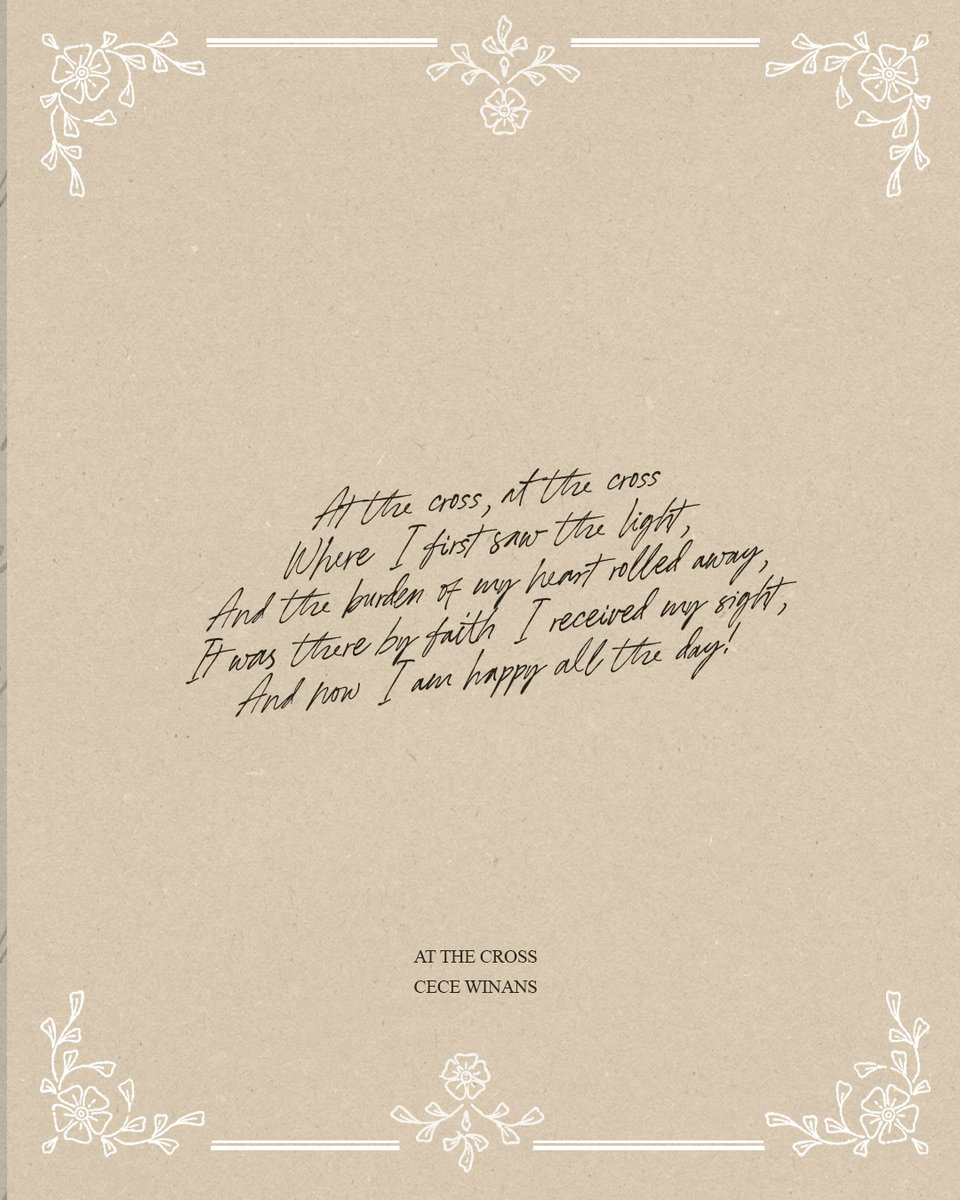 At the cross, at the cross
Where I first saw the light,
And the burden of my heart rolled away,
It was there by faith I received my sight,
And now I am happy all the day!
AT THE CROSS
CECE WINANS